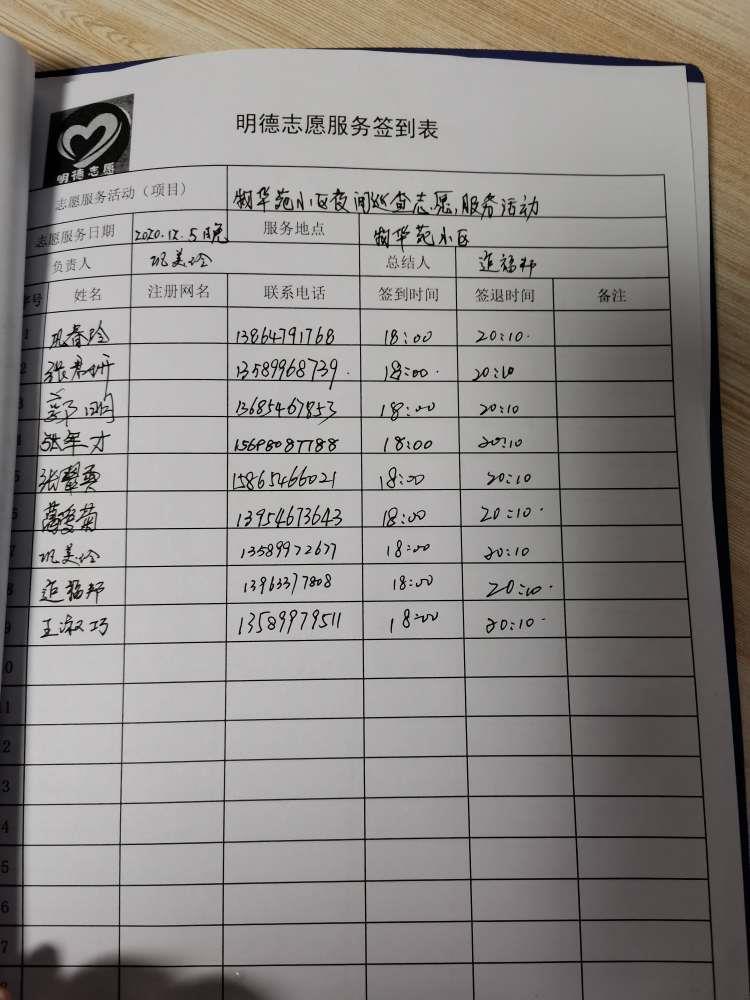 明德志愿服务签到表
明德志愿
志愿服务活动（项目） 物华苑小区夜间巡查志愿服务活动
志愿服务日期 2020.12.5日晚 服务地点 物华苑小区
负责人 巩美玲 总结人 延福邦
序号 姓名 注册网名 联系电话 签到时间 签退时间 备注
1 巩春玲 13864791768 18:00 20:10.
2 张君妍 13589968739. 18:00. 20:10
3 郭 13685467853 18:00 20:10
4 张年才 15698087788 18:00 20:10
5 张翠英 15865466021 18:00 20:10
6 葛爱菊 13954673643 18:00 20:10.
7 巩美玲 13589972677 18:00 20:10
8 延福邦 13963377808 18:00 20:10.
9 王淑巧 13589979511 18:00 20:10.
10
11
2
3
4
5
6
7
8